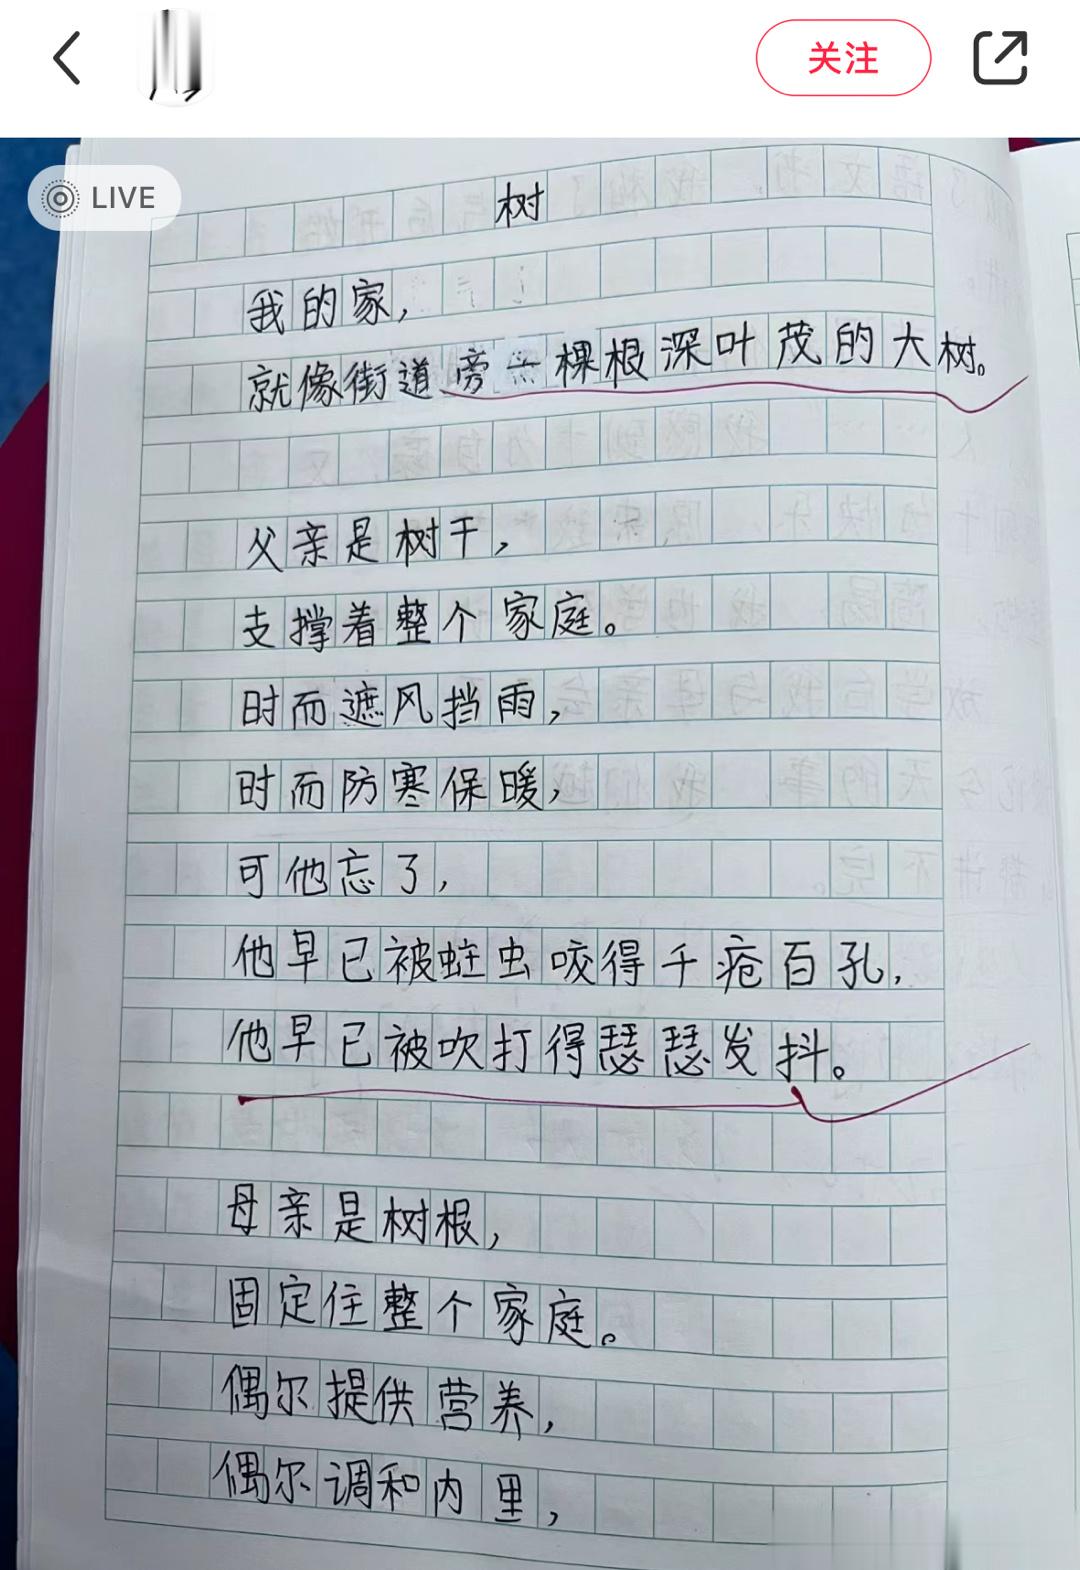 关注
LIVE
树
我的家，
就像街道旁一棵根深叶茂的大树。
父亲是树干，
支撑着整个家庭。
时而遮风挡雨，
时而防寒保暖，
可他忘了，
他早已被蛀虫咬得千疮百孔，
他早已被吹打得瑟瑟发抖。
母亲是树根，
固定住整个家庭。
偶尔提供营养，
偶尔调和内里，